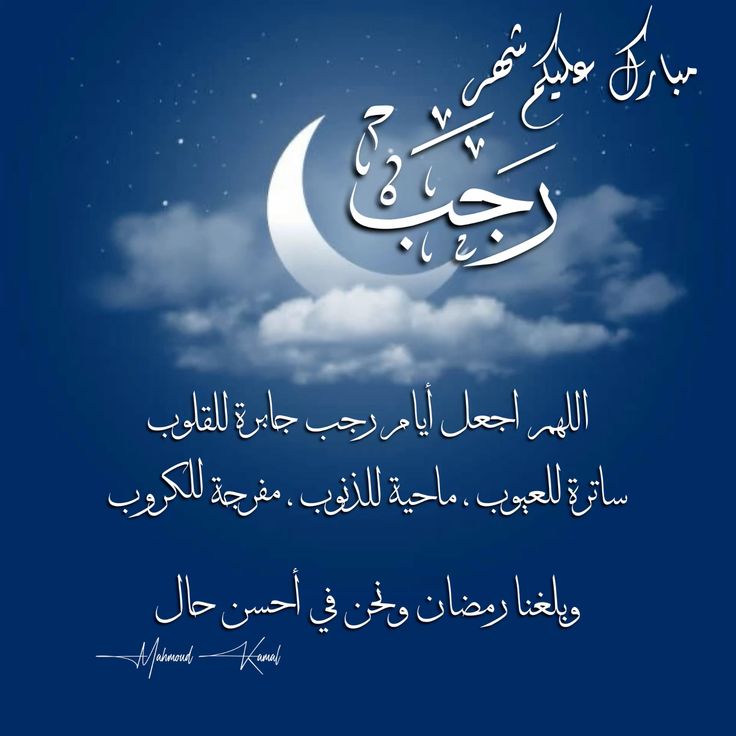 مبارك عليكم شهر
رَجَبَ
اللهم اجعل أيام رجب جابرة للقلوب
ساترة للعيوب ، ماحية للذنوب ، مفرجة للكروب
وبلغنا رمضان ونحن في أحسن حال
Mahmoud Kamal